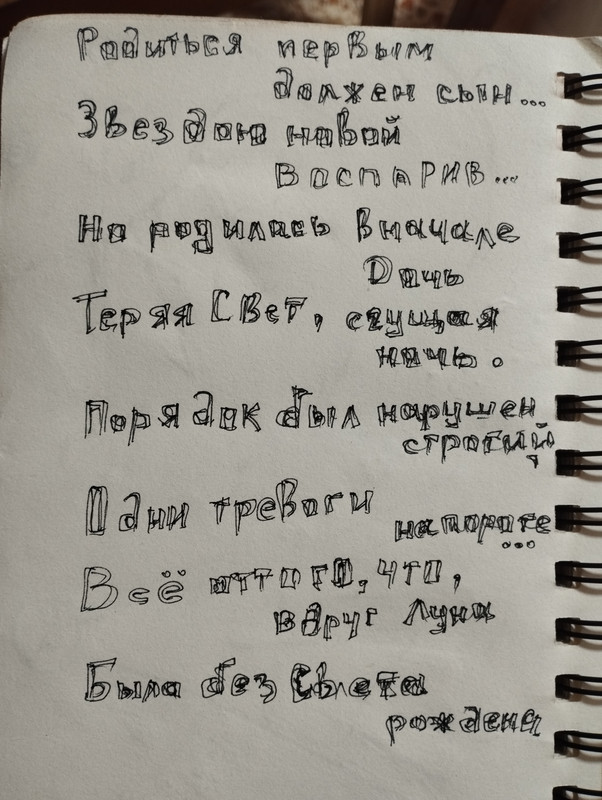 Родиться первым
должен сын...
Звездою новой
Воспарив...
Но родилась вначале
Дочь
Теряя Свет, сгущая
ночь.
Порядок был нарушен
строгий,
Одни тревоги
на пороге
...
Всё оттого, что,
вдруг Луна
Была без Света
рождена